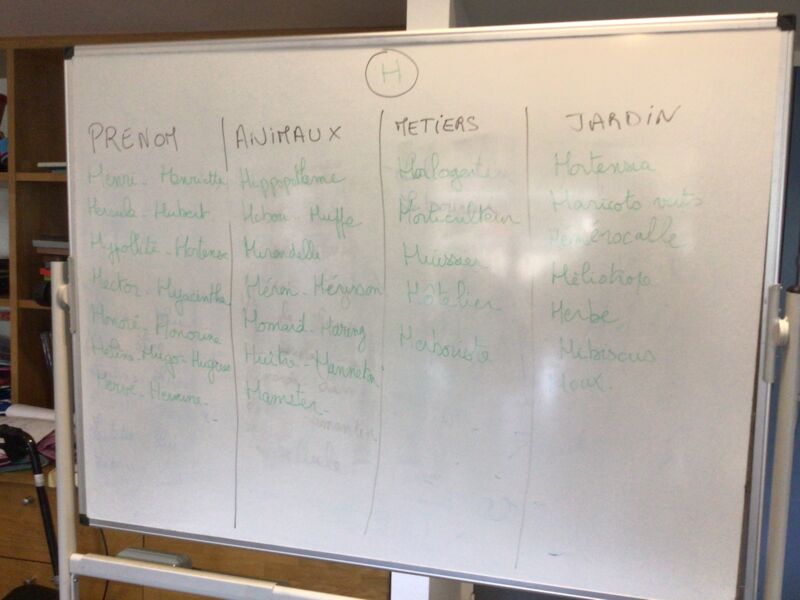 H
PRENOM
Henri - Henriette
Hercule - Hubert
Hyppolite - Hortense
Hector - Hyacinthe
Honoré - Honorine
Hugo - Hugues
Hervé - Hermine -
ANIMAUX
Hippopotame
Hibou - Huppe
Hirondelle
Héron - Hérisson
Homard - Hareng
Huître - Hanneton
Hamster -
METIERS
Horloger
Horticulteur
Huissier
Hôtelier
Herboriste
JARDIN
Hortensia
Haricots verts
Hemerocalle
Héliotrope
Herbe
Hibiscus
Houx.